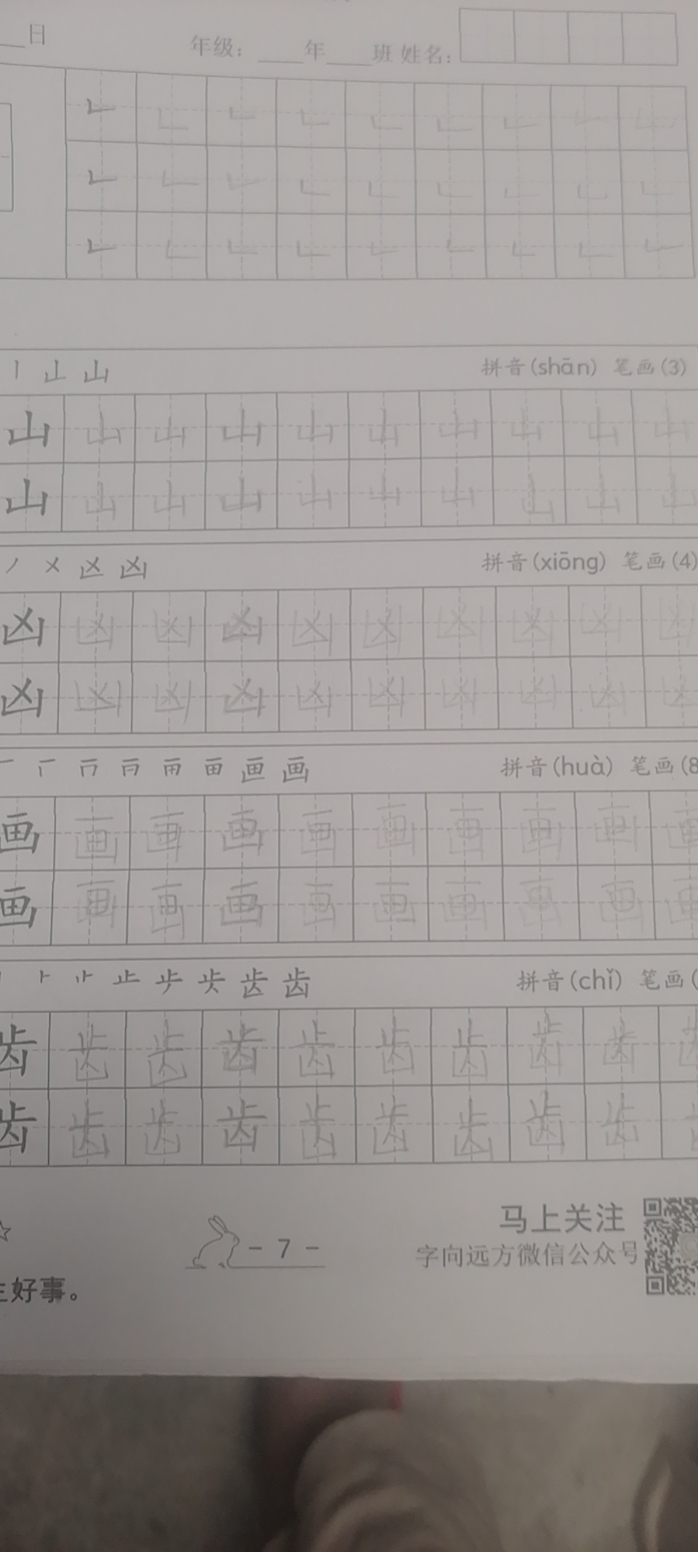 日 年级：____年____班 姓名：
𠃊 𠃊 𠃊 𠃊 𠃊 𠃊 𠃊 𠃊 𠃊
𠃊 𠃊 𠃊 𠃊 𠃊 𠃊 𠃊 𠃊 𠃊
𠃊 𠃊 𠃊 𠃊 𠃊 𠃊 𠃊 𠃊 𠃊
山 拼音(shān) 笔画(3)
山 山 山 山 山 山 山 山 山 山
山 山 山 山 山 山 山 山 山 山
凶 拼音(xiōng) 笔画(4)
凶 凶 凶 凶 凶 凶 凶 凶 凶 凶
凶 凶 凶 凶 凶 凶 凶 凶 凶 凶
画 拼音(huà) 笔画(8
画 画 画 画 画 画 画 画 画 画
画 画 画 画 画 画 画 画 画 画
止 齿 拼音(chǐ) 笔画(
齿 齿 齿 齿 齿 齿 齿 齿 齿
齿 齿 齿 齿 齿 齿 齿 齿 齿
马上关注
- 7 - 字向远方微信公众号
好事。